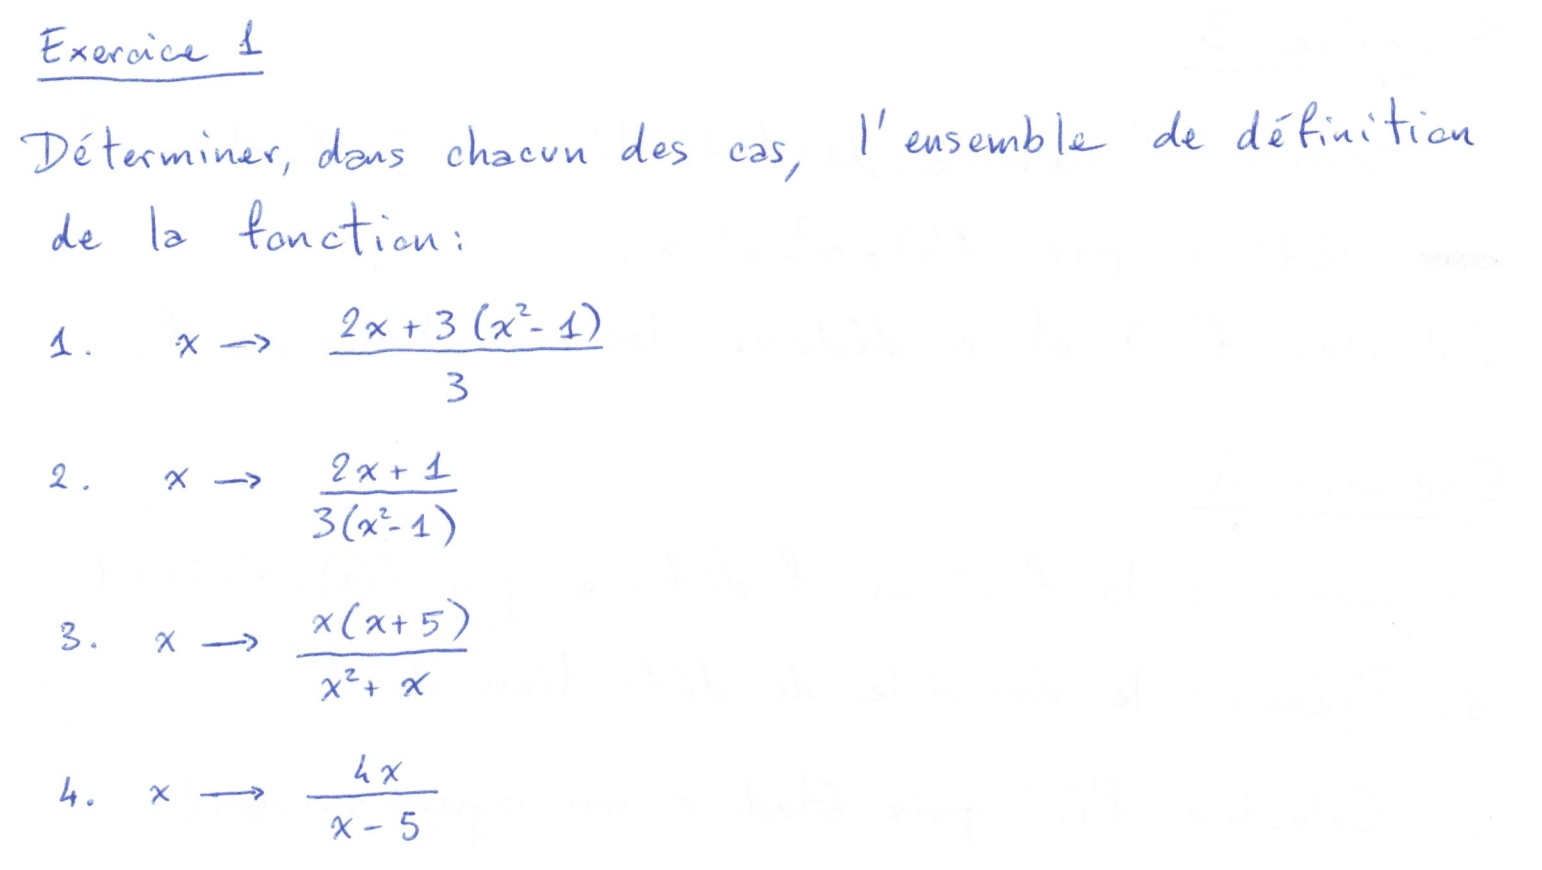 Exercice 1
Déterminer, dans chacun des cas, l'ensemble de définition
de la fonction:
1. x → (2x + 3(x² - 1)) / 3
2. x → (2x + 1) / (3(x² - 1))
3. x → (x(x + 5)) / (x² + x)
4. x → 4x / (x - 5)